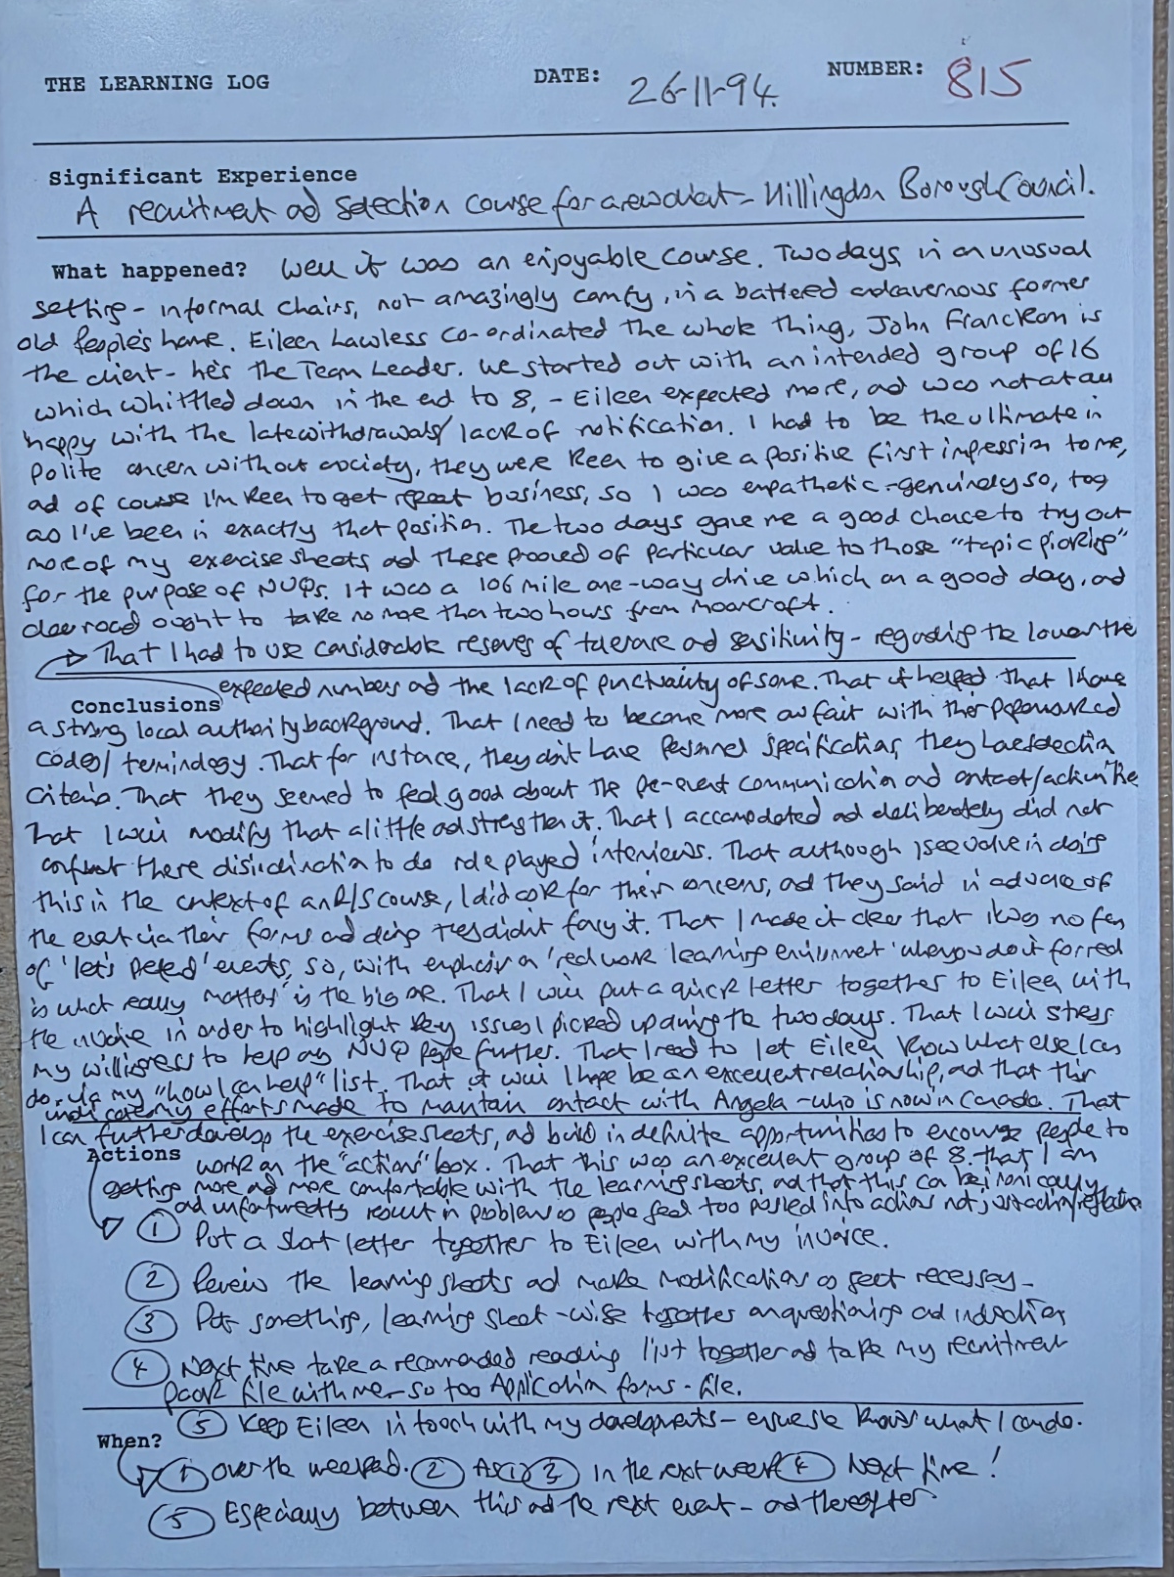 THE LEARNING LOG DATE: 26-11-94. NUMBER: 815
Significant Experience
A recruitment ad selection course for a new client - Hillingdon Borough Council.
What happened? Well it was an enjoyable course. Two days, in an unusual
setting - informal chairs, not amazingly comfy, in a battered cavernous former
old people's home. Eileen Lawless co-ordinated the whole thing, John Franckom is
the client - he's the Team Leader. We started out with an intended group of 16
which whittled down in the end to 8, - Eileen expected more, ad was not at all
happy with the late withdrawals/lack of notification. I had to be the ultimate in
polite concern without anxiety, they were keen to give a positive first impression to me,
ad of course I'm keen to get repeat business, so I was empathetic - genuinely so, too
as I've been in exactly that position. The two days gave me a good chance to try out
more of my exercise sheets ad these prooved of particular value to those "topic picking"
for the purpose of NVQs. It was a 106 mile one-way drive which on a good day, ad
clear road ought to take no more than two hours from Moorcroft.
That I had to use considerable reserves of tolerance ad sensitivity - regarding the lower the
expected numbers ad the lack of punctuality of some. That it helped that I have
Conclusions
a strong local authority background. That I need to become more au fait with their
codes/terminology. That for instance, they don't have personnel specifications, they have selection
criteria. That they seemed to feel good about the pre-event communication ad contact/action the
that I will modify that a little ad strengthen it. That I accomodated ad deliberately did not
confront there disinclination to do role played interviews. That although I see value in doing
this in the context of an R/S course, I did ask for their concerns, ad they said in advance of
the event via their forms ad during they didn't fancy it. That I made it clear that it was no fan
of 'let's pretend' events, so, with emphasis on 'real work learning environment' 'when you do it for real
is what really matters' is the big one. That I will put a quick letter together to Eileen with
the invoice in order to highlight key issues I picked up during the two days. That I will stress
my willingness to help any NVQ people further. That I need to let Eileen know what else I can
do, via my "how I can help" list. That it will I hope be an excellent relationship, ad that this
vindicates my efforts made to maintain contact with Angela - who is now in Canada. That
I can further develop the exercise sheets, ad build in definite opportunities to encourage people to
Actions work on the "actions" box. That this was an excellent group of 8. that I am
getting more ad more comfortable with the learning sheets, ad that this can be ironically
ad unfortunately result in problems as people feel too pushed into actions not
① Put a short letter together to Eileen with my invoice.
② Review the learning sheets ad make modifications as feel necessary -
③ Put something, learning sheet-wise together on questioning ad induction
④ Next time take a recommended reading list together ad take my recruitment
pack file with me - so too Application forms - file.
⑤ Keep Eileen in touch with my developments - ensure she knows what I can do.
When?
① over the weekend. ② As ① ③ In the next week ④ Next time!
⑤ Especially between this ad the next event - ad thereafter.